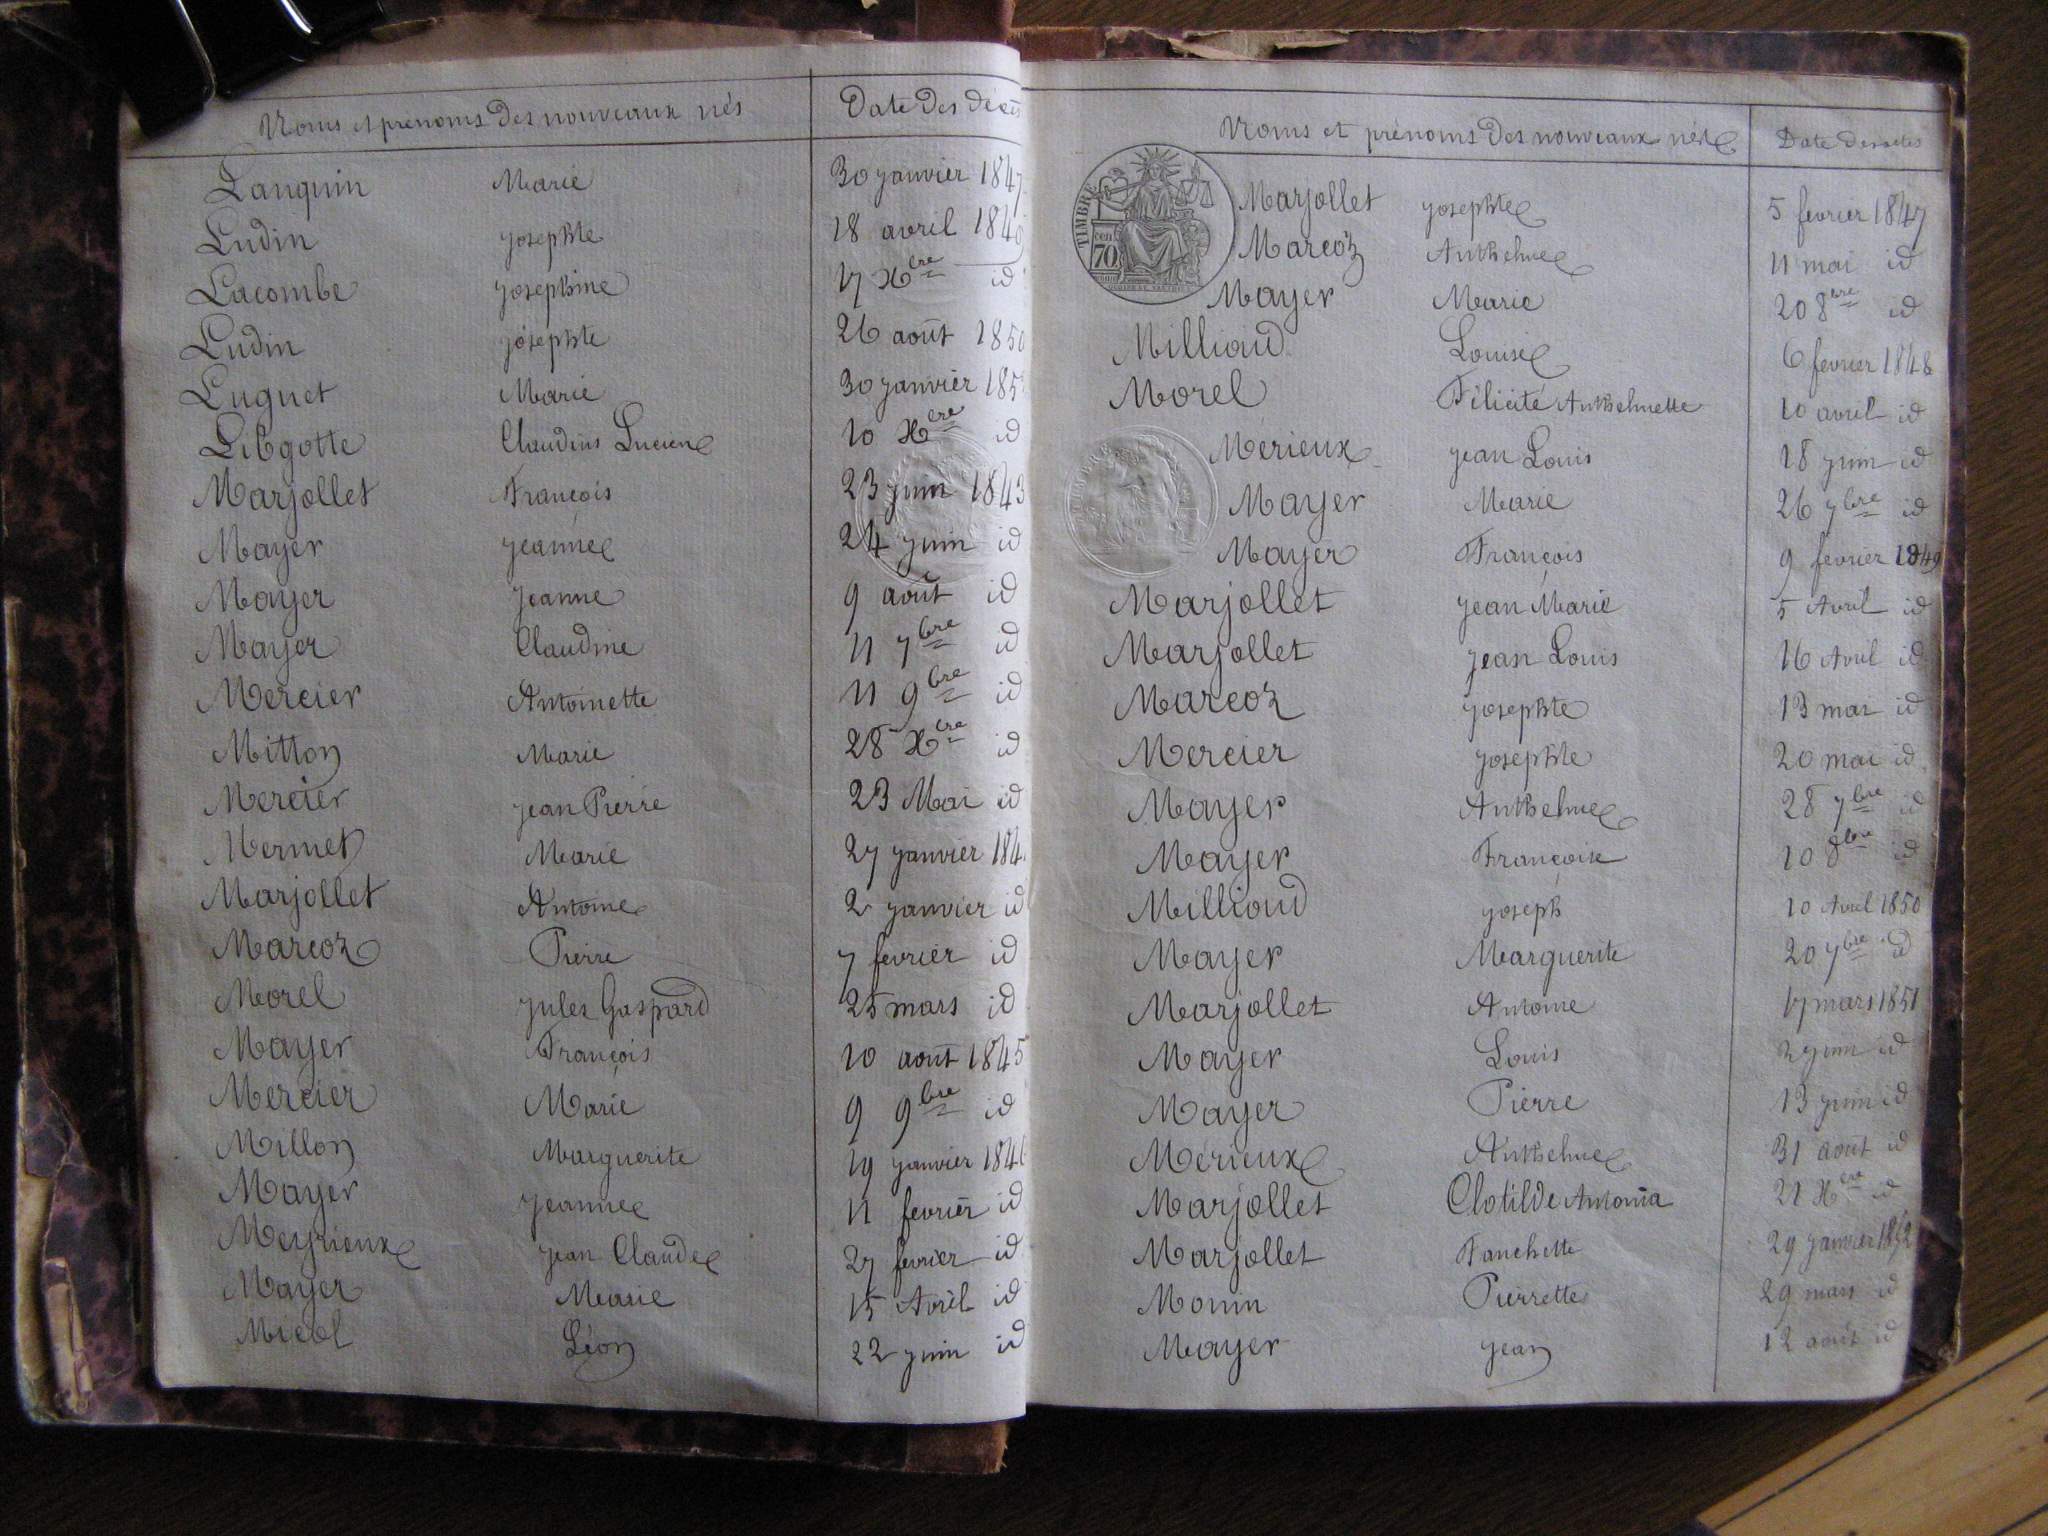 Noms et prénoms des nouveaux nés Date des décès
Lanquin Marie 30 janvier 1847
Ludin josephte 18 avril 1849
Lacombe josephine 17 Xbre id
Ludin josephte 26 août 1850
Luguet Marie 30 janvier 185
Libgotte Claudius Lucien 10 Xbre id
Marjollet François 23 juin 1843
Mayer jeanne 24 juin id
Mayer jeanne 9 août id
Mayer Claudine 11 7bre id
Mercier Antoinette 11 9bre id
Mitton Marie 28 Xbre id
Mercier jean Pierre 23 Mai id
Mermet Marie 27 janvier 184
Marjollet Antoine 2 janvier id
Marcoz Pierre 7 fevrier id
Morel jules Gaspard 25 mars id
Mayer François 10 août 1845
Mercier Marie 9 9bre id
Millon Marguerite 19 janvier 1846
Mayer jeanne 11 fevrier id
Meyrieux jean Claude 27 fevrier id
Mayer Marie 15 Avril id
Micol Léon 22 juin id
Noms et prénoms des nouveaux nés Date des actes
TIMBRE
cent
70
Marjollet josephte 5 fevrier 1847
Marcoz Anthelme 11 mai id
Mayer Marie 20 8bre id
Milliand Louise 6 fevrier 1848
Morel Félicité Anthelmette 10 avril id
Mérieux jean Louis 18 juin id
Mayer Marie 26 7bre id
Mayer François 9 fevrier 1849
Marjollet jean Marie 5 Avril id
Marjollet jean Louis 16 Avril id
Marcoz josephte 13 mai id
Mercier josephte 20 mai id
Mayer Anthelme 28 7bre id
Mayer Françoise 10 8bre id
Milliand joseph 10 Avril 1850
Mayer Marguerite 20 7bre id
Marjollet Antoine 17 mars 1851
Mayer Louis 2 juin id
Mayer Pierre 13 juin id
Mérieux Anthelme 31 août id
Marjollet Clotilde Antonia 21 Xbre id
Marjollet Fanchette 29 janvier 1852
Monin Pierrette 29 mars id
Mayer jean 12 août id